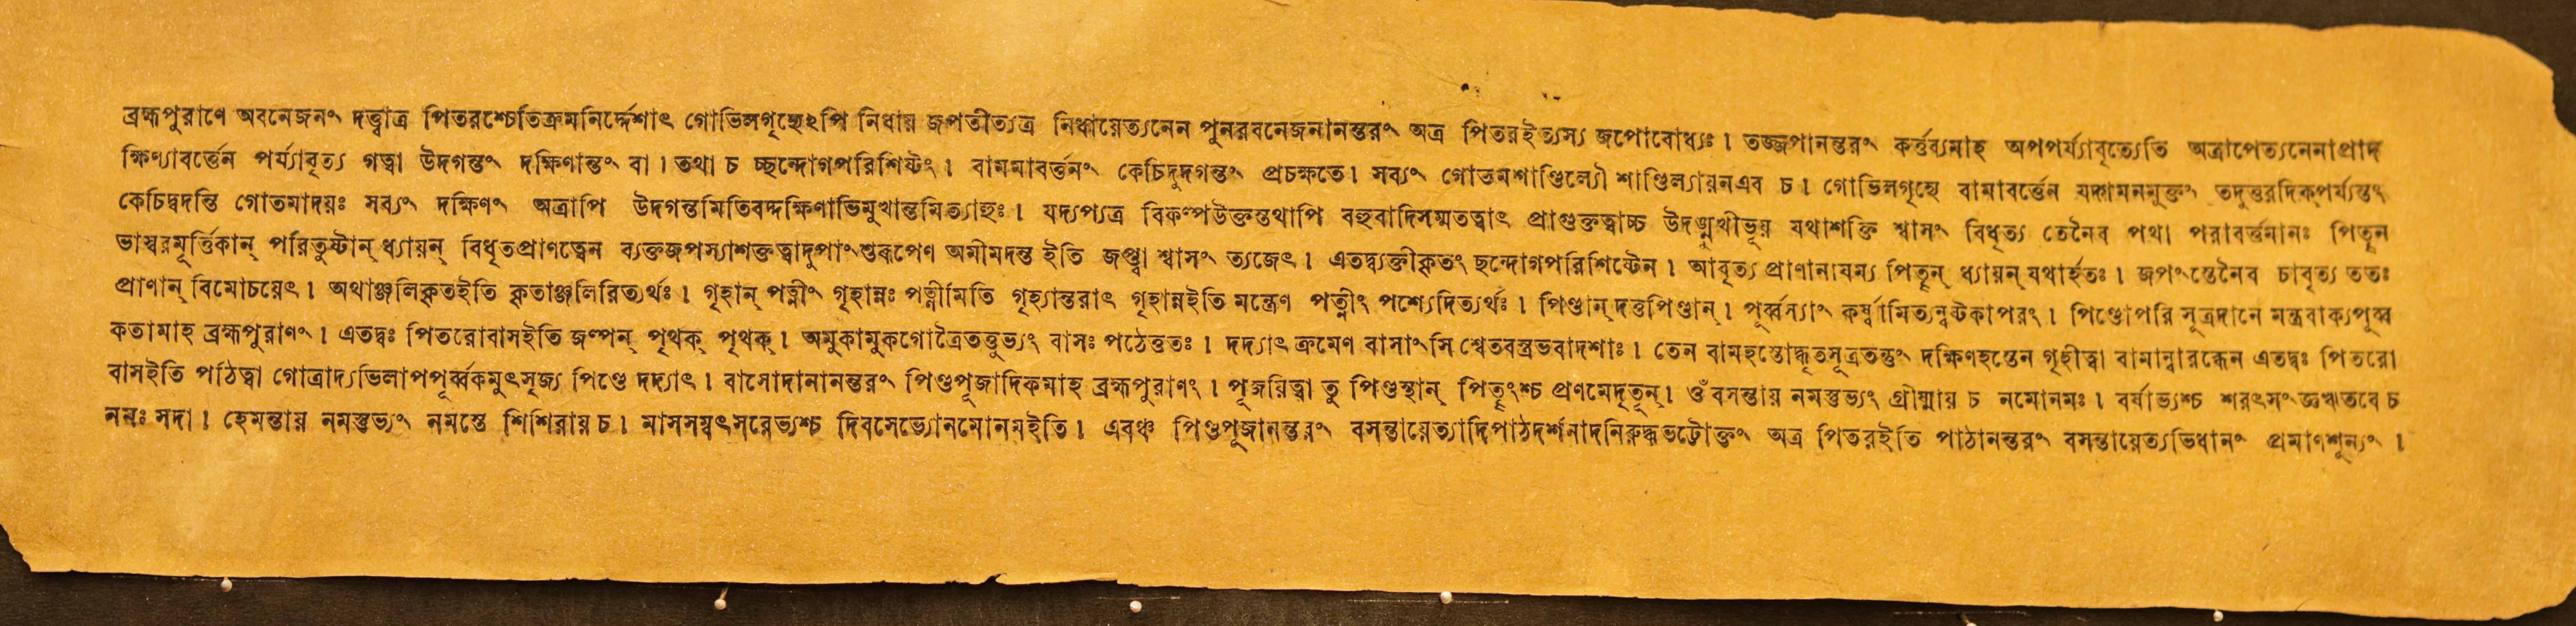 ব্রহ্মপুরাণে অবনেজনং দত্ত্বাত্র পিতরশ্চেতিক্রমনির্দ্দেশাৎ গোভিলগৃহ্যেঽপি নিধায় জপতীত্যত্র নিধায়েত্যনেন পুনরবনেজনানন্তরং অত্র পিতরইত্যস্য জপোবোধ্যঃ। তজ্জপানন্তরং কর্ত্তব্যমাহ অপপর্য্যাবৃত্যেতি অত্রাপেত্যনেনাপ্রাদ
ক্ষিণ্যাবর্ত্তেন পর্য্যাবৃত্য গত্বা উদগন্তং দক্ষিণান্তং বা। তথা চ চ্ছন্দোগপরিশিষ্টং। বামমাবর্ত্তনং কেচিদুদগন্তং প্রচক্ষতে। সব্যং গোতমশাণ্ডিল্যৌ শাণ্ডিল্যায়নএব চ। গোভিলগৃহ্যে বামাবর্ত্তেন যদ্গমনমুক্তং তদুত্তরদিক্পর্য্যন্তং
কেচিদ্বদন্তি গোতমাদয়ঃ সব্যং দক্ষিণং অত্রাপি উদগন্তমিতিবদ্দক্ষিণাভিমুখান্তমিত্যাহুঃ। যদ্যপ্যত্র বিকল্পউক্তস্তথাপি বহুবাদিসম্মতত্বাৎ প্রাগুক্তত্বাচ্চ উদঙ্মুখীভূয় যথাশক্তি শ্বাসং বিধৃত্য তেনৈব পথা পরাবর্ত্তমানঃ পিতৄন্
ভাস্বরমূর্ত্তিকান্ পরিতুষ্টান্ ধ্যায়ন্ বিধৃতপ্রাণত্বেন ব্যক্তজপস্যাশক্তত্বাদুপাংশুরূপেণ অমীমদন্ত ইতি জপ্ত্বা শ্বাসং ত্যজেৎ। এতদ্ব্যক্তীকৃতং ছন্দোগপরিশিষ্টেন। আবৃত্য প্রাণানাযম্য পিতৄন্ ধ্যায়ন্ যথার্হতঃ। জপংস্তেনৈব চাবৃত্য ততঃ
প্রাণান্ বিমোচয়েৎ। অথাঞ্জলিকৃতইতি কৃতাঞ্জলিরিত্যর্থঃ। গৃহান্ পত্নীং গৃহান্নঃ পত্নীমিতি গৃহ্যান্তরাৎ গৃহান্নইতি মন্ত্রেণ পত্নীং পশ্যেদিত্যর্থঃ। পিণ্ডান্ দত্তপিণ্ডান্। পূর্ব্বস্যাং কর্ষ্বামিত্যন্বষ্টকাপরং। পিণ্ডোপরি সূত্রদানে মন্ত্রবাক্যপূর্ব্ব
কতামাহ ব্রহ্মপুরাণং। এতদ্বঃ পিতরোবাসইতি জল্পন্ পৃথক্ পৃথক্। অমুকামুকগোত্রৈতত্তুভ্যং বাসঃ পঠেত্ততঃ। দদ্যাৎ ক্রমেণ বাসাংসি শ্বেতবস্ত্রভবাদশাঃ। তেন বামহস্তোদ্ধৃতসূত্রতন্তুং দক্ষিণহস্তেন গৃহীত্বা বামান্বারব্ধেন এতদ্বঃ পিতরো
বাসইতি পঠিত্বা গোত্রাদ্যভিলাপপূর্ব্বকমুৎসৃজ্য পিণ্ডে দদ্যাৎ। বাসোদানানন্তরং পিণ্ডপূজাদিকমাহ ব্রহ্মপুরাণং। পূজয়িত্বা তু পিণ্ডস্থান্ পিতৄংশ্চ প্রণমেদৃতূন্। ওঁ বসন্তায় নমস্তুভ্যং গ্রীষ্মায় চ নমোনমঃ। বর্ষাভ্যশ্চ শরৎসংজ্ঞঋতবে চ
নমঃ সদা। হেমন্তায় নমস্তুভ্যং নমস্তে শিশিরায় চ। মাসসম্বৎসরেভ্যশ্চ দিবসেভ্যোনমোনমইতি। এবঞ্চ পিণ্ডপূজানন্তরং বসন্তায়েত্যাদিপাঠদর্শনাদনিরুদ্ধভট্টোক্তং অত্র পিতরইতি পাঠানন্তরং বসন্তায়েত্যভিধানং প্রমাণশূন্যং।